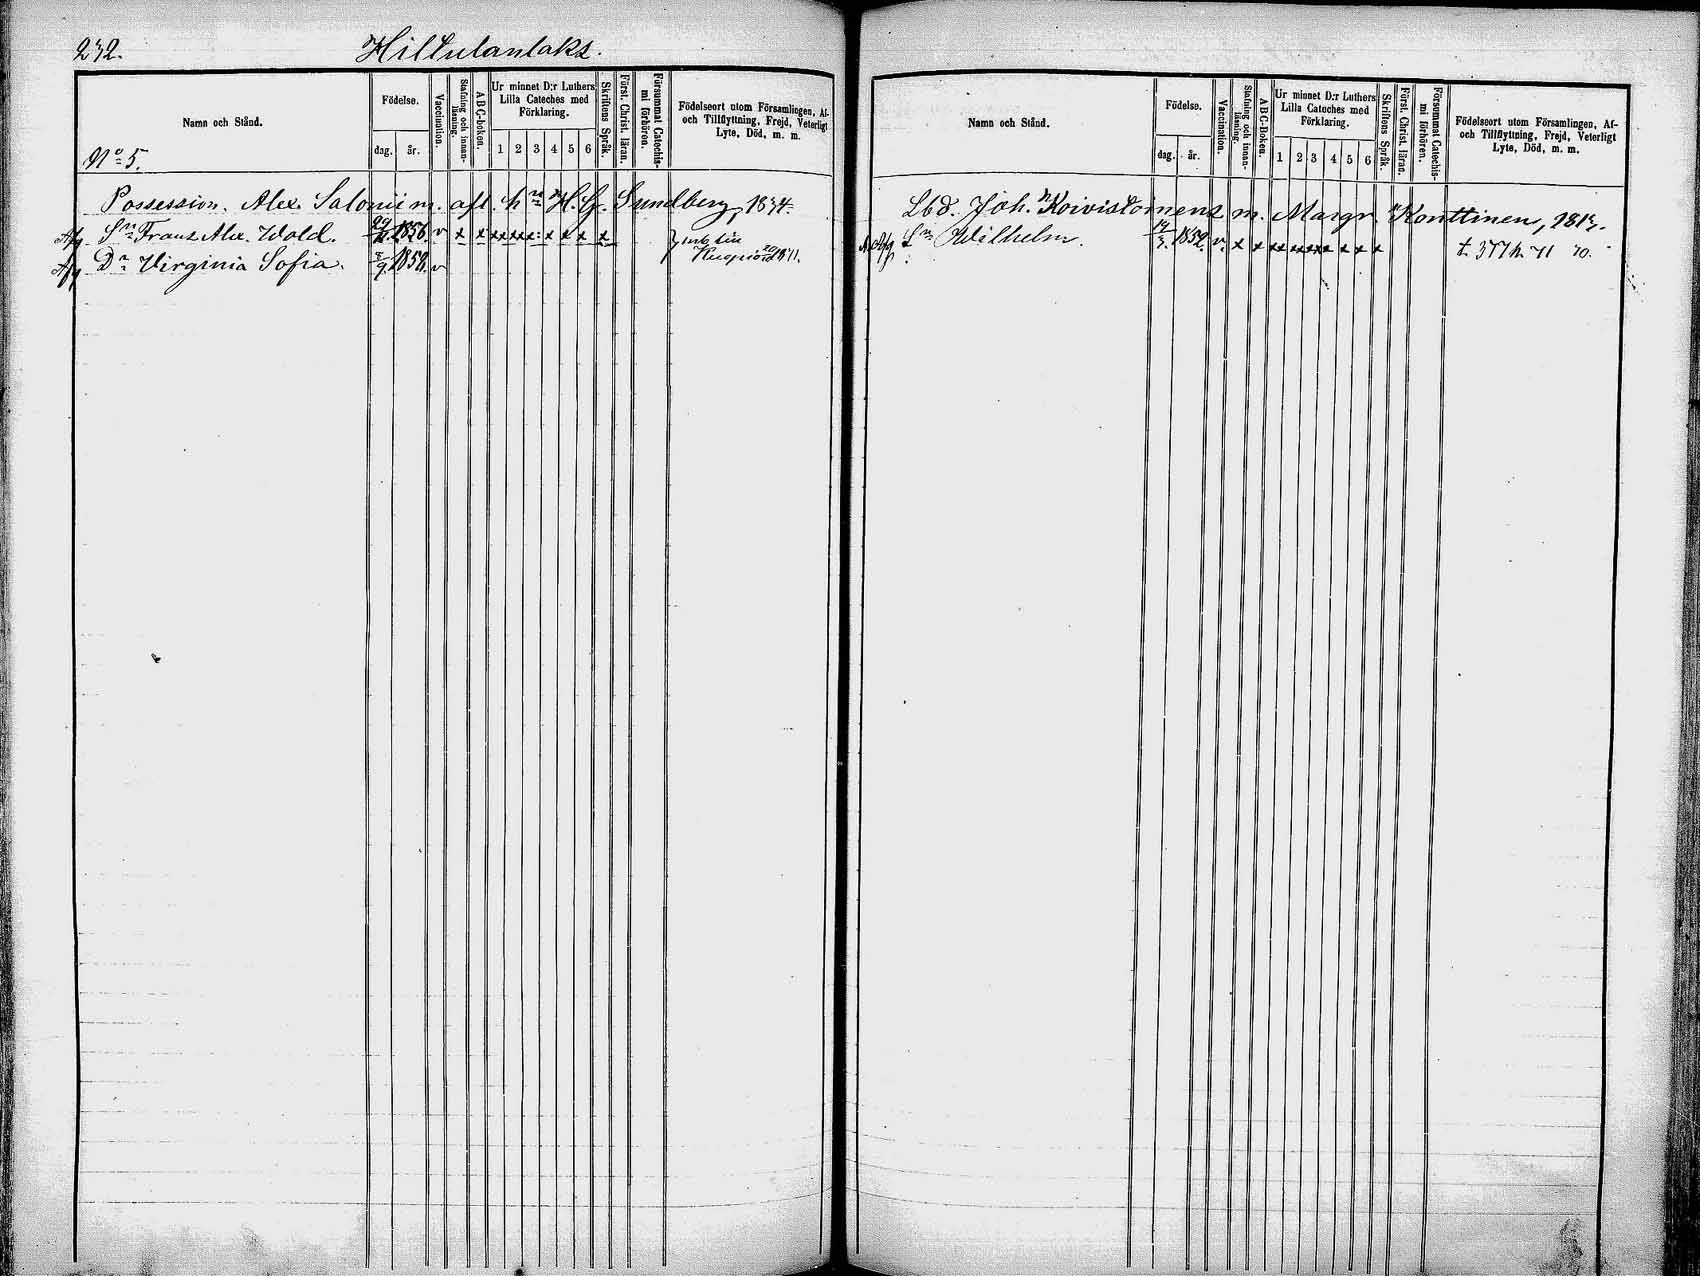 232. Hiltulanlaks.
Namn och Stånd.
Födelse.
dag. år.
Vaccination.
Stafning och innan-läsning.
A B C-boken.
Ur minnet D:r Luthers
Lilla Cateches med
Förklaring.
1 2 3 4 5 6
Skriftens Språk.
Först. Christ. läran.
Försummat Catechis-
mi förhören.
Födelseort utom Församlingen, Af-
och Tillflyttning, Frejd, Veterligt
Lyte, Död, m. m.
No 5.
Possession. Alex. Salonii m. afl. h n H. G. Sundberg, 1834.
Sn Frans Alex. Wold. 1856. v x x x x x x x x
Dn Virginia Sofia. 9 1858. v
Kuopio 1871.
Namn och Stånd.
Födelse.
dag. år.
Vaccination.
Stafning och innan-läsning.
A B C-Boken.
Ur minnet D:r Luthers
Lilla Cateches med
Förklaring.
1 2 3 4 5 6
Skriftens Språk.
Först. Christ. läran.
Försummat Catechis-
mi förhören.
Födelseort utom Församlingen, Af-
och Tillflyttning, Frejd, Veterligt
Lyte, Död, m. m.
Lbd. Joh. Koivistoinens m. Margr. Konttinen, 1813.
Sn Wilhelm. 1852. v. x x x x x x x x
t. 377 n. 71 70.